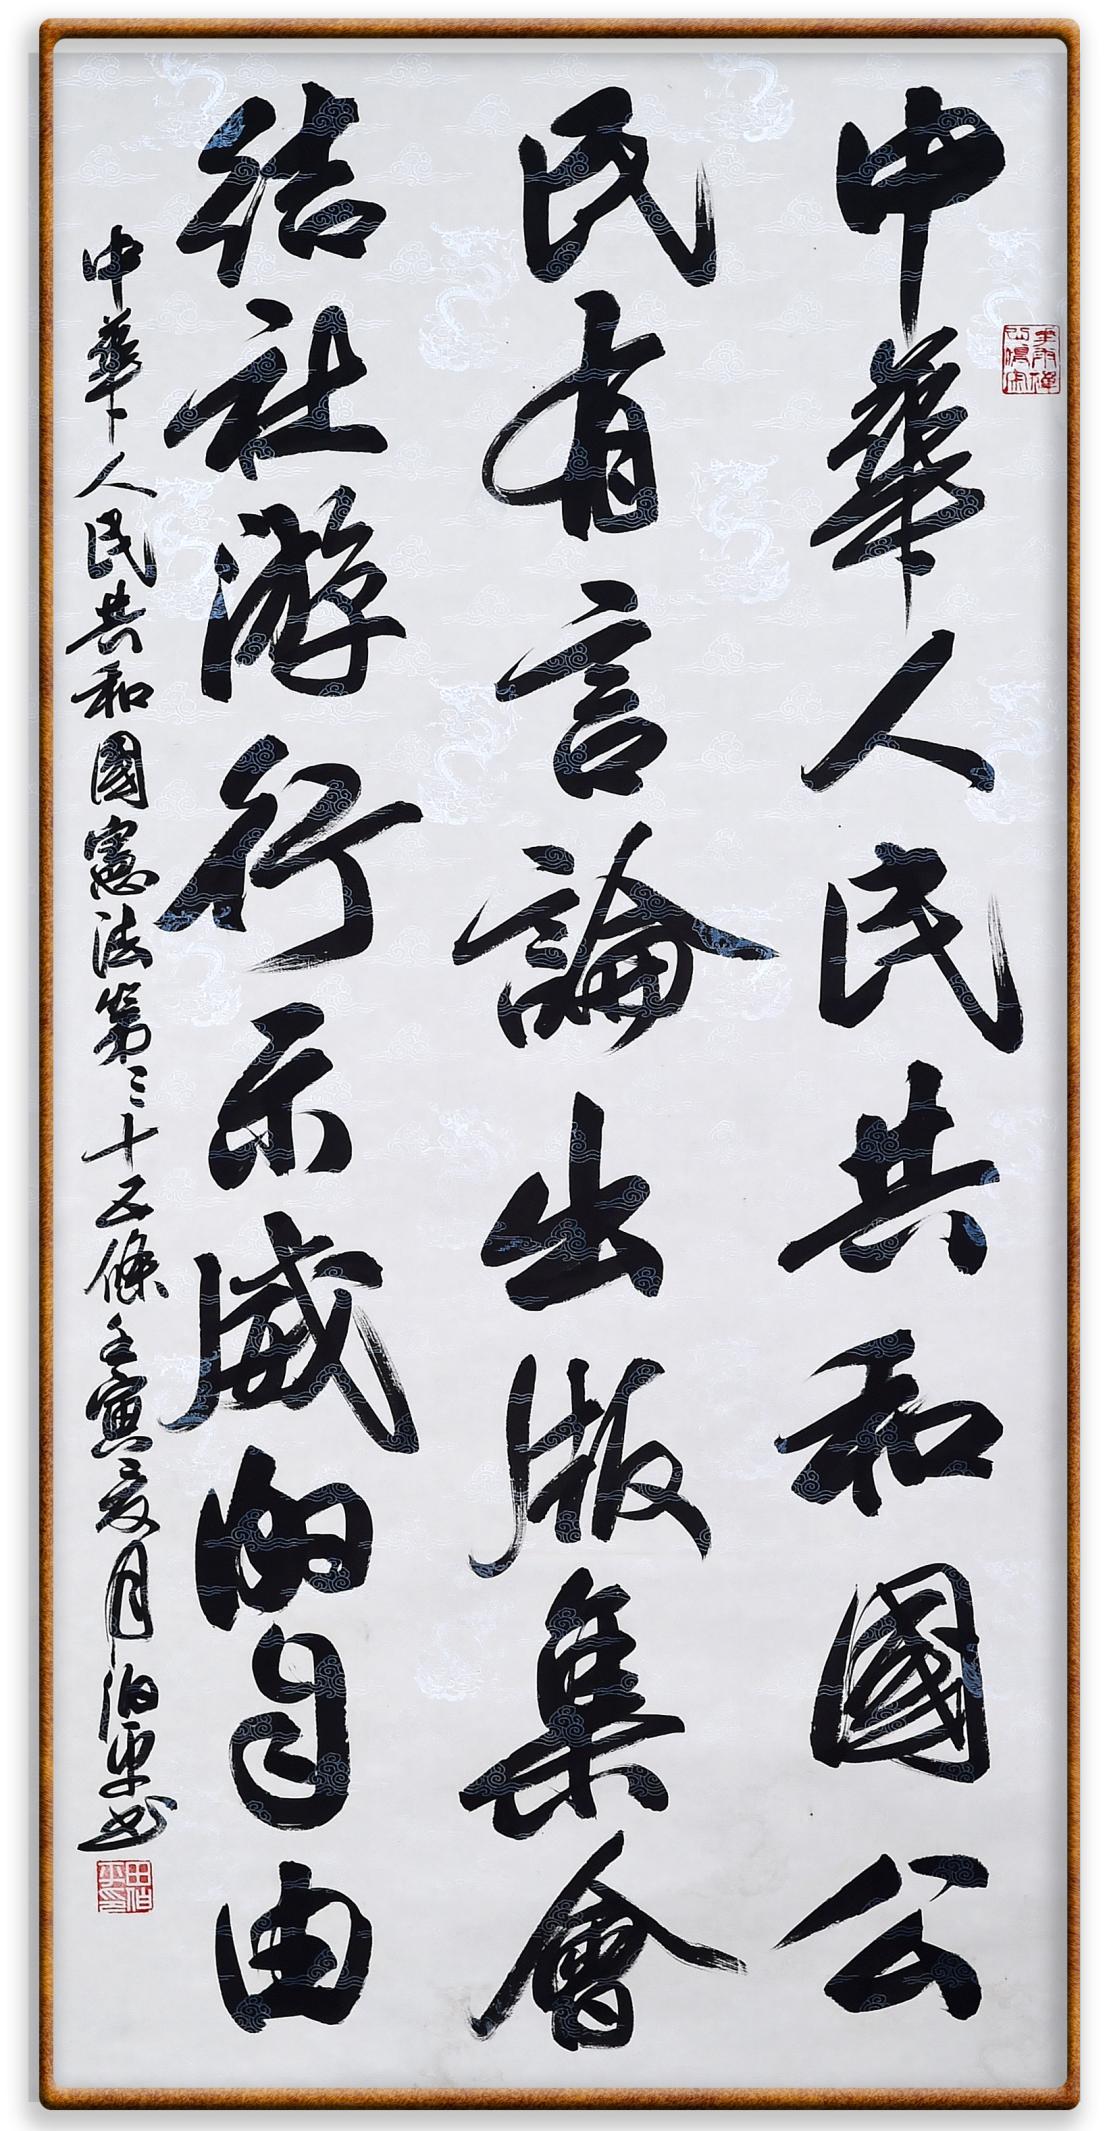 中華人民共和國公
民有言論出版集會
結社游行示威的自由
中華人民共和國憲法第三十五條壬寅夏月伯平書
田伯平印